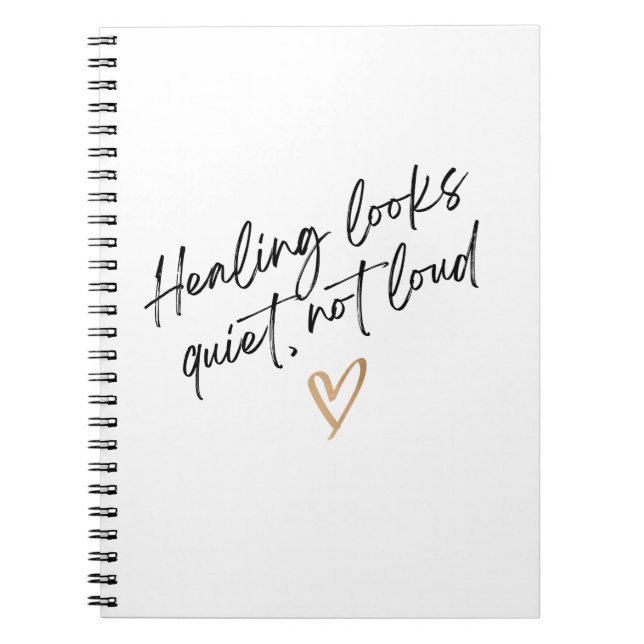 Healing looks
quiet, not loud